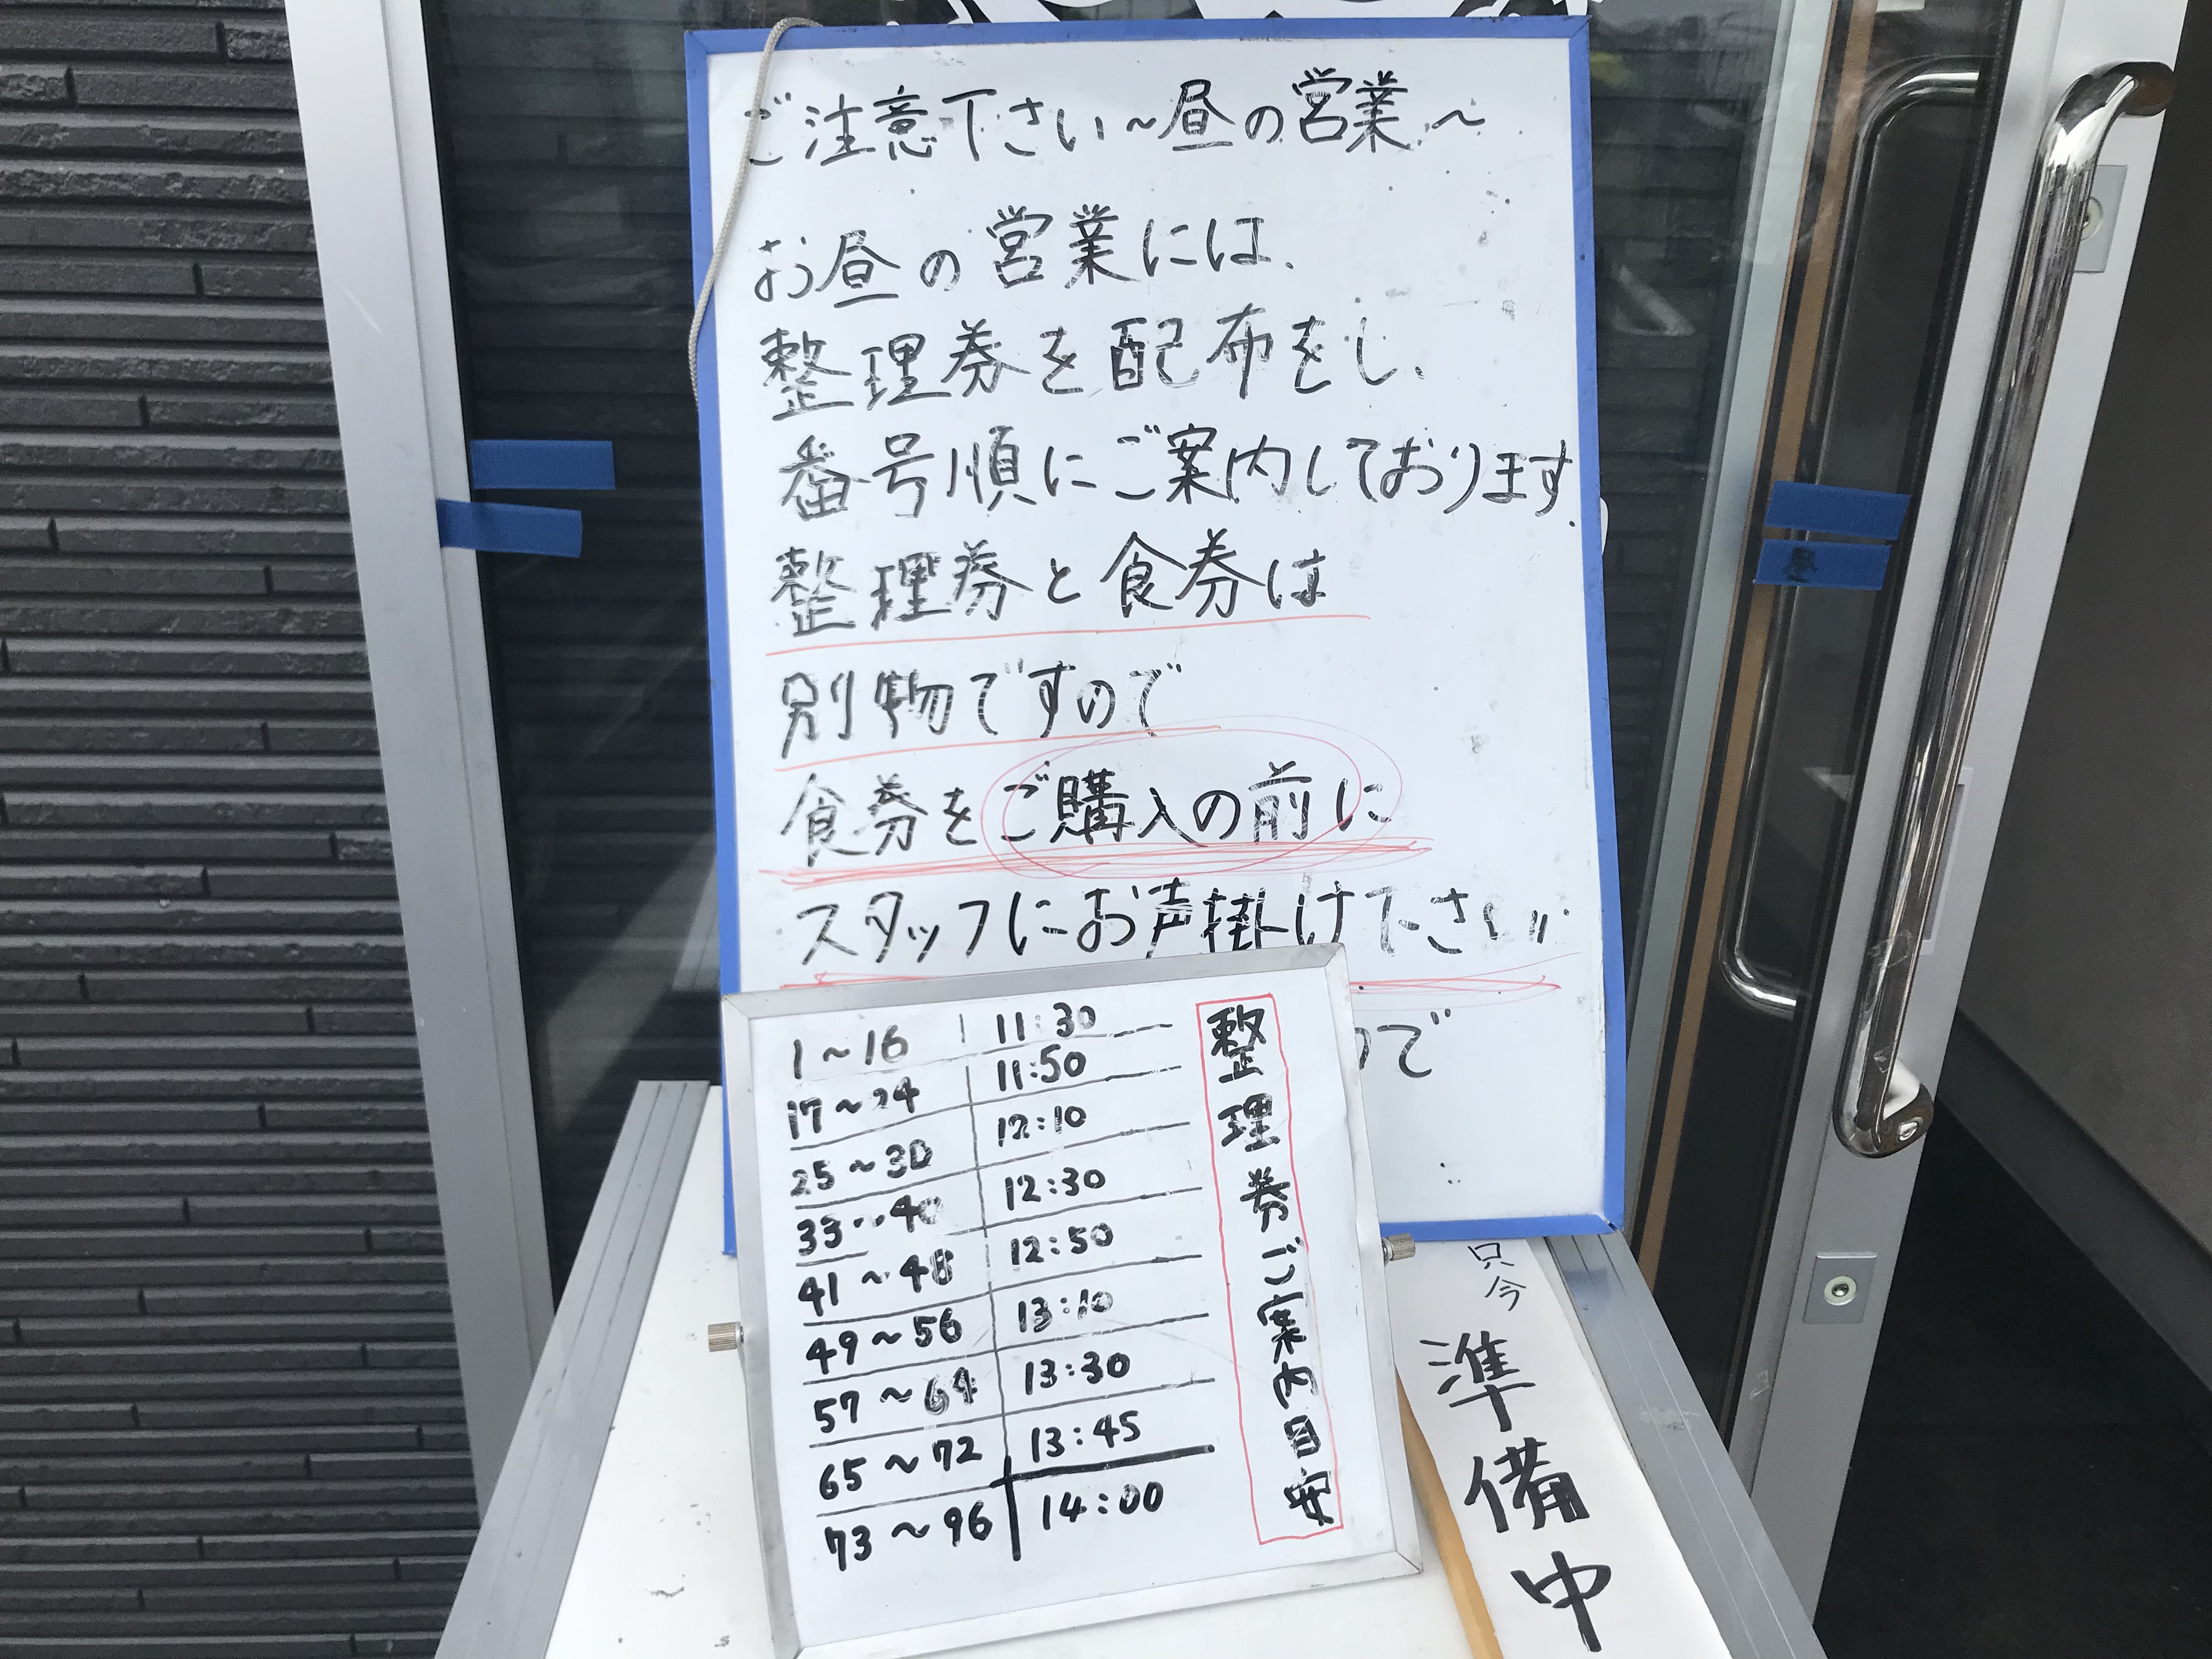 ご注意下さい～昼の営業～
お昼の営業には、
整理券を配布をし、
番号順にご案内しております。
整理券と食券は
別物ですので
食券をご購入の前に
スタッフにお声掛け下さい
ので
整理券ご案内目安
1～16 11:30
17～24 11:50
25～30 12:10
33～40 12:30
41～48 12:50
49～56 13:10
57～64 13:30
65～72 13:45
73～96 14:00
只今
準備中